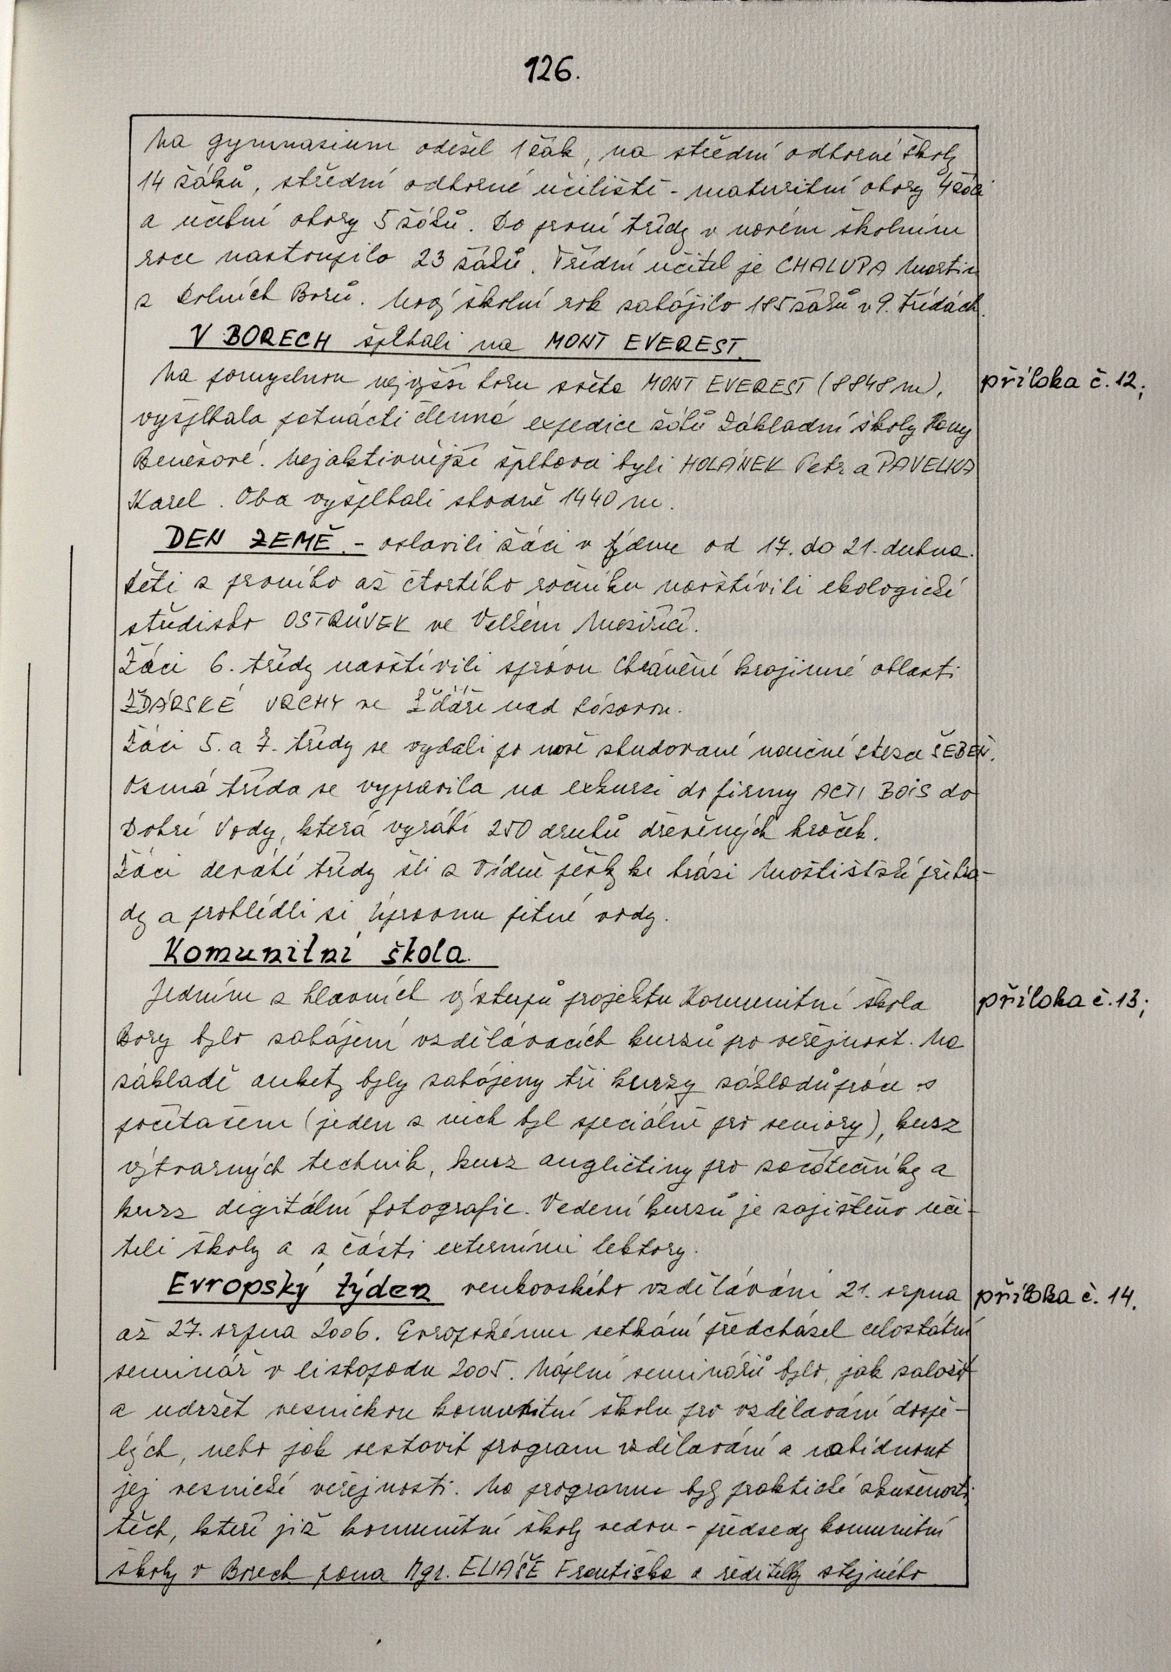 126.
Na gymnasium odešel 1 žák, na střední odborné školy
14 žáků, střední odborné učiliště - maturitní obory 4 žáci
a učební obory 5 žáků. Do první třídy v novém školním
roce nastoupilo 23 žáků. Třídní učitel je CHALUPA Martin
z Dolních Borů. Nový školní rok zahájilo 185 žáků v 9. třídách.
V BORECH šplhali na MONT EVEREST.
Na pomyslnou nejvyšší horu světa MONT EVEREST (8848 m),
příloha č. 12;
vyšplhala patnácti členná expedice žáků Základní školy Hany
Benešové. Nejaktivnější šplhouni byli HOLÁNEK Petr a PAVELKA
Karel. Oba vyšplhali shodně 1440 m.
DEN ZEMĚ - oslavili žáci v týdnu od 17. do 21. dubna.
Děti z prvního až čtvrtého ročníku navštívili ekologické
středisko OSTRŮVEK ve Velkém Meziříčí.
Žáci 6. třídy navštívili správu Chráněné krajinné oblasti
ŽĎÁRSKÉ VRCHY ve Žďáře nad Sázavou.
Žáci 5. a 7. třídy se vydali po nově zbudované naučné stezce ŠEBEŇ.
Osmá třída se vypravila na exkurzi do firmy ACTI BOIS do
Dobré Vody, která vyrábí 250 druhů dřevěných hraček.
Žáci deváté třídy šli z Vídně pěšky ke hrázi Mostišťské přehra-
dy a prohlédli si úpravnu pitné vody.
Komunitní škola.
Jedním z hlavních výstupů projektu Komunitní škola
příloha č. 13;
Bory bylo zahájení vzdělávacích kurzů pro veřejnost. Na
základě ankety byly zahájeny tři kurzy základů práce s
počítačem (jeden z nich byl speciálně pro seniory), kurz
výtvarných technik, kurz angličtiny pro začátečníky a
kurz digitální fotografie. Vedení kurzů je zajištěno uči-
teli školy a z části externími lektory.
Evropský týden venkovského vzdělávání 21. srpna
příloha č. 14.
až 27. srpna 2006. Evropskému setkání předcházel celostátní
seminář v listopadu 2005. Náplní seminářů bylo, jak založit
a udržet vesnickou komunitní školu pro vzdělávání dospě-
lých, nebo jak sestavit program vzdělávání a nabídnout
jej vesnické veřejnosti. Na programu byly praktické zkušenosti
těch, kteří již komunitní školy vedou - předsedy komunitní
školy v Borech pana Mgr. ELIÁŠE Františka a ředitelky stejného